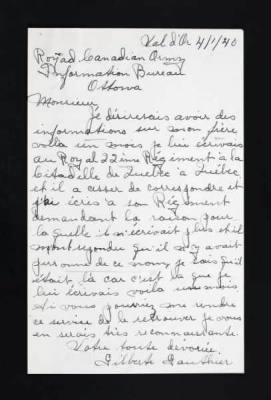 Val d'Or 4/1/40
Royal Canadian Army
Information Bureau
Ottawa
Monsieur,
Je désirerais avoir des
informations sur mon frère
voila un mois je lui écrivais
au Royal 22ième Régiment à la
Citadelle de Québec à Québec,
et il a cesser de correspondre et
j'ai écris à son Régiment
demandant la raison pour
laquelle il m'écrivait plus et il
mont repondu qu'il n'y avait
personne de ce nom, je sais qu'il
était là car c'est là que je
lui écrivais voila un mois
si vous pourriez me rendre
ce service de le retrouver je vous
en serais très reconnaissante.
Votre toute dévouée,
Gilberte Gauthier